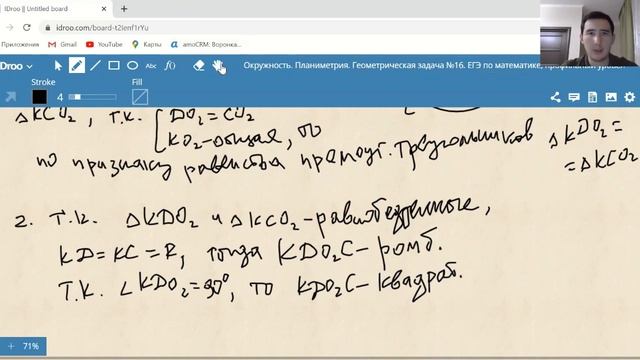 IDroo || Untitled board
idroo.com/board-t2Ienf1rYu
Приложения Gmail YouTube Карты amoCRM: Воронка...
Droo Abc f(x) Окружность. Планиметрия. Геометрическая задача №16. ЕГЭ по математике, профильный урове
Stroke Fill
4
△KCO₂, т.к. DO₂=CO₂
KO₂-общая, то
по признаку равенства прямоуг. треугольников △KDO₂=
=△KCO₂
2. Т.к. △KDO₂ и △KCO₂-равнобедренные,
KD=KC=R, тогда KDO₂C-ромб.
Т.к. ∠KDO₂=90°, то KDO₂C-квадрат.
71%